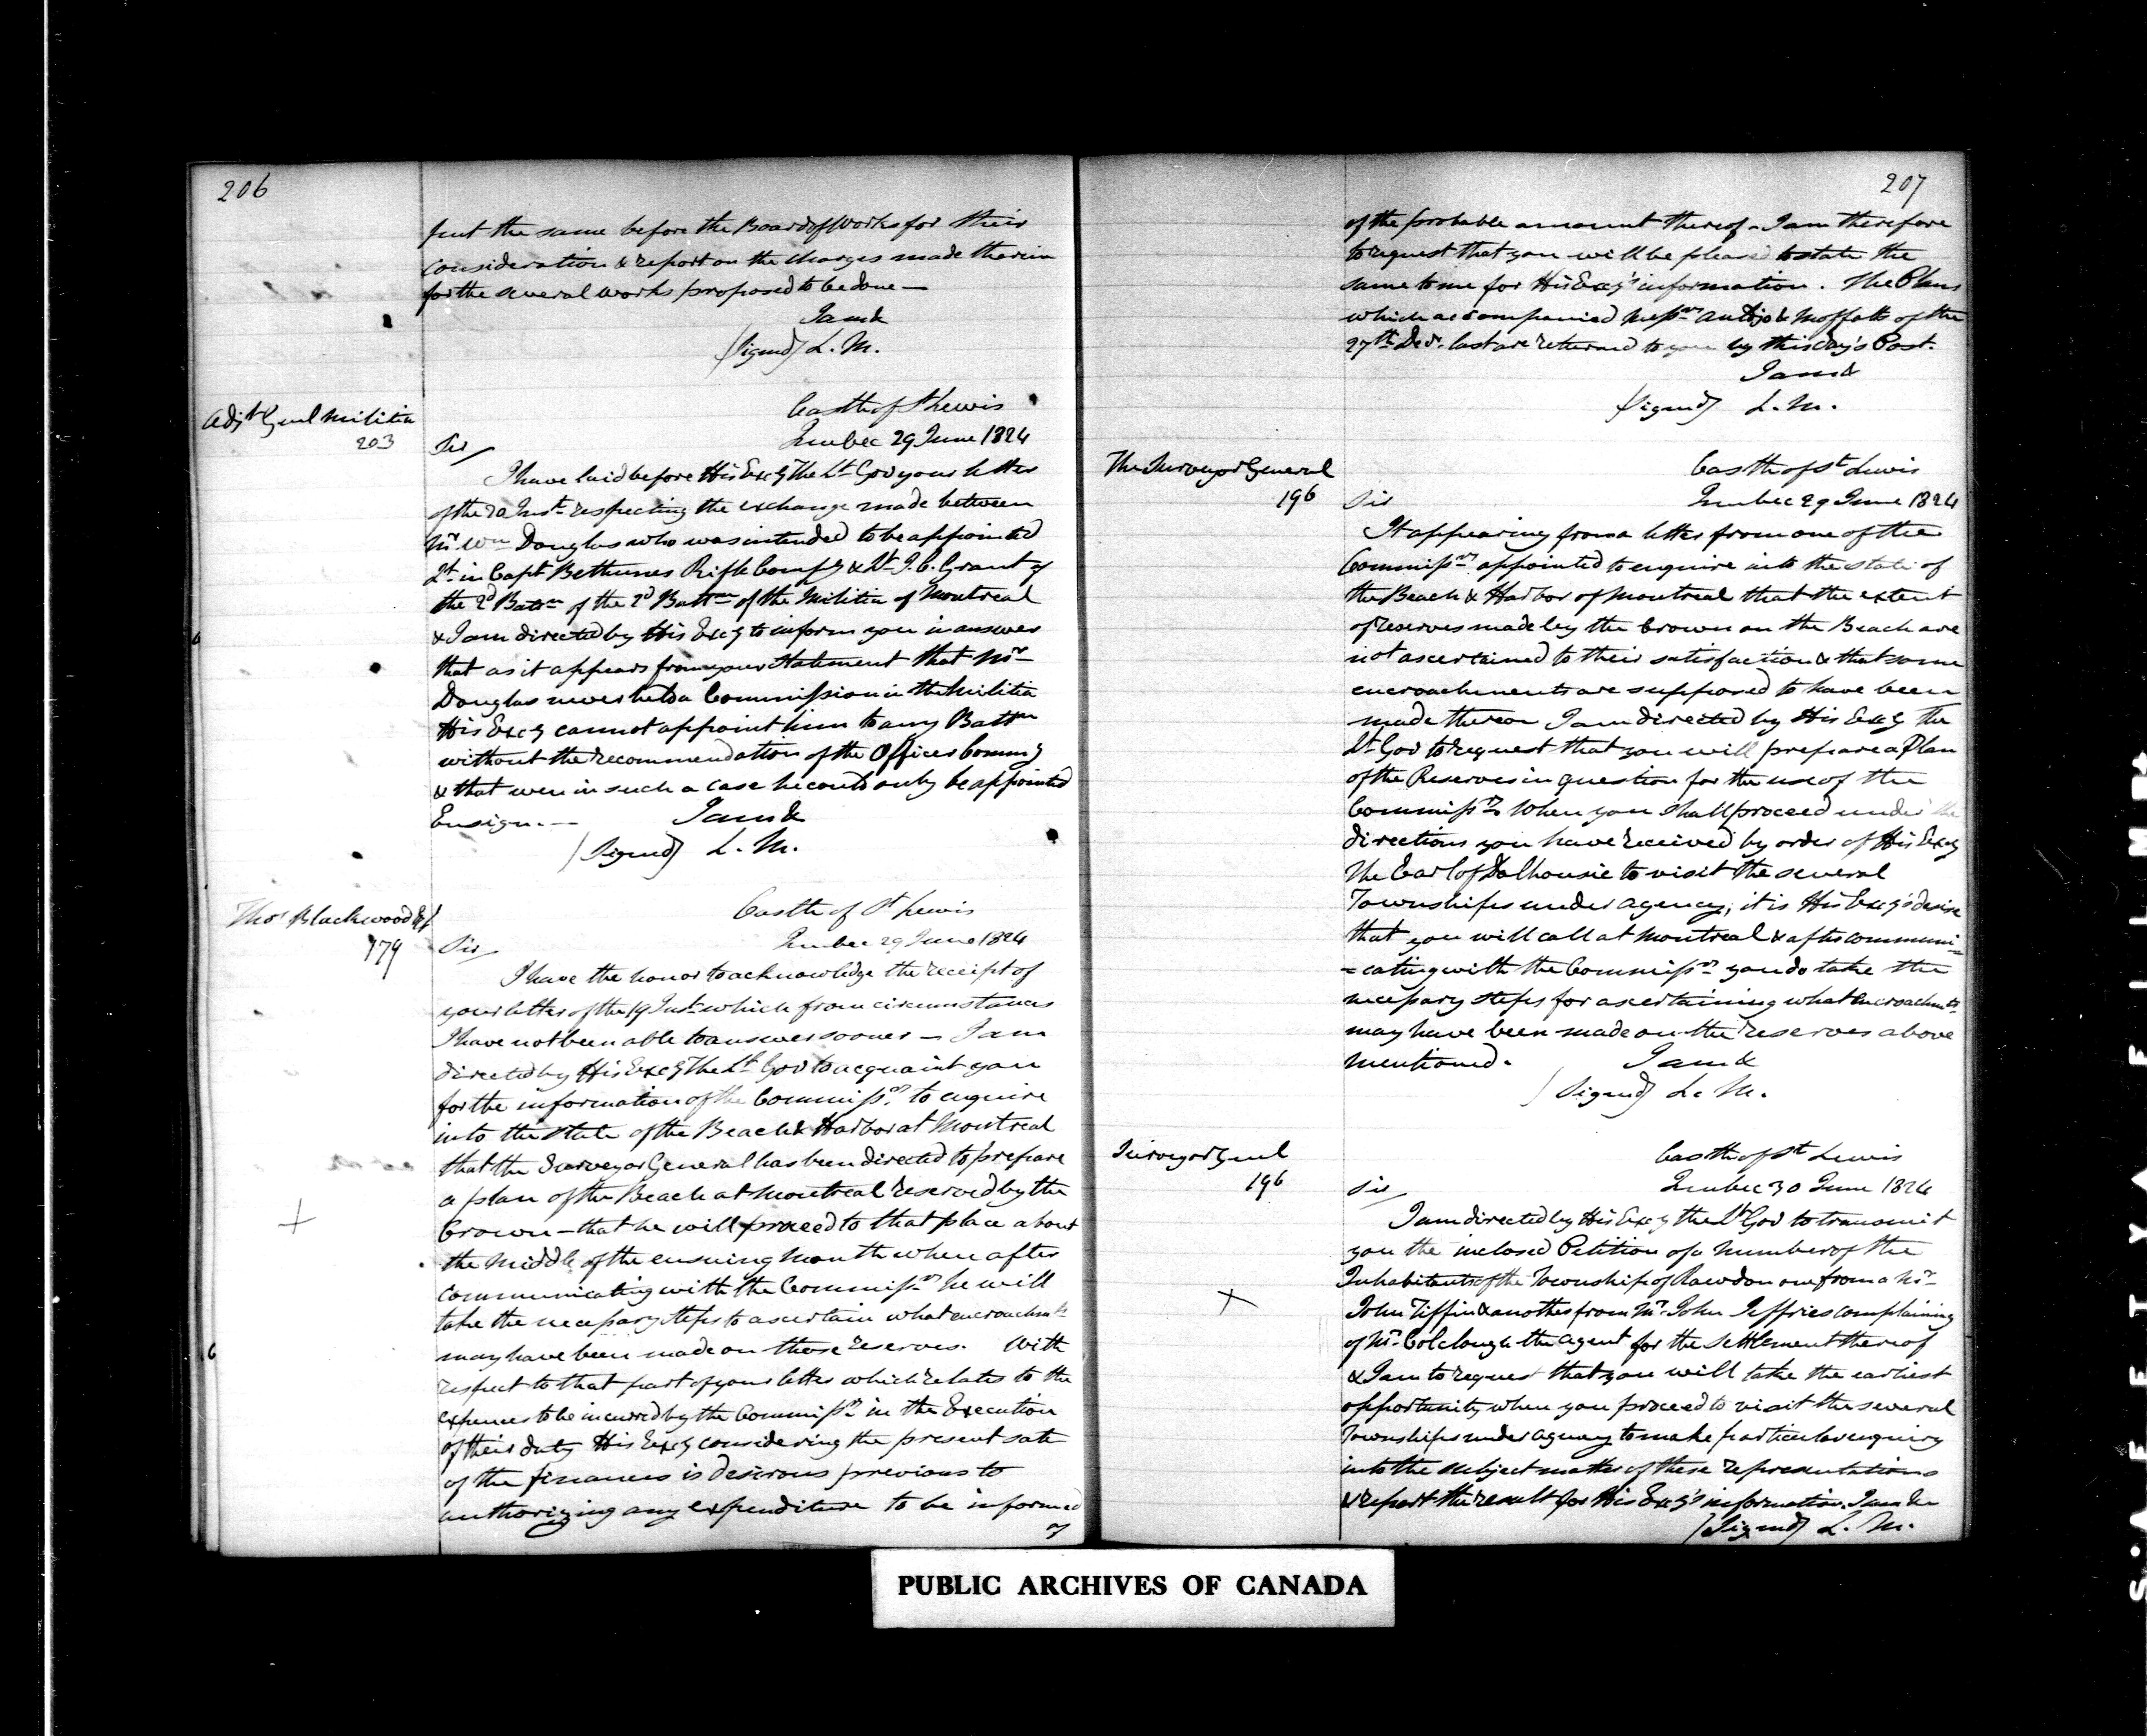 206
put the same before the Board of Works for their
consideration & report on the charges made therein
for the several works proposed to be done —
I am &
(Signed) L. M.
Adjt Genl Militia
203
Castle of St Lewis
Quebec 29 June 1824
Sir
I have laid before His Excy The Lt Gov your letter
of the Inst respecting the exchange made between
Mr Wm Douglas who was intended to be appointed
Lt in Capt Bethunes Rifle Compy & Lt J. C. Grant of
the 2d Battn of the 2d Battn of the Militia of Montreal
& I am directed by His Excy to inform you in answer
that as it appears from your Statement that Mr
Douglas never held a Commission in the Militia
His Excy cannot appoint him to any Battn
without the recommendation of the Officer Commg
& that even in such a case he could only be appointed
Ensign. — I am &
(Signed) L. M.
Thos Blackwood Esq
179
Castle of St Lewis
Quebec 29 June 1824
Sir
I have the honor to acknowledge the receipt of
your letter of the 19 Inst which from circumstances
I have not been able to answer sooner — I am
directed by His Excy The Lt Gov to acquaint you
for the information of the Commissrs to enquire
into the state of the Beach & Harbor at Montreal
that the Surveyor General has been directed to prepare
a plan of the Beach at Montreal reserved by the
Crown — that he will proceed to that place about
the middle of the ensuing month when after
communicating with the Commissrs he will
take the necessary steps to ascertain what encroachmts
may have been made on those reserves. With
respect to that part of your letter which relates to the
expences to be incurred by the Commissrs in the Execution
of their duty His Excy considering the present sate
of the finances is desirous previous to
authorizing any expenditure to be informed
of
207
of the probable amount thereof. I am therefore
to request that you will be pleased to state the
same to me for His Excy's information. The Plans
which accompanied Messrs Auldjo & Moffatts of the
27th Decr last are returned to you by this day's Post.
I am &
(Signed) L. M.
The Surveyor General
196
Castle of St Lewis
Quebec 29 June 1824
Sir
It appearing from a letter from one of the
Commissrs appointed to enquire into the state of
the Beach & Harbor of Montreal that the extent
of reserves made by the Crown on the Beach are
not ascertained to their satisfaction & that some
encroachments are supposed to have been
made thereon I am directed by His Excy The
Lt Gov to request that you will prepare a Plan
of the Reserves in question for the use of the
Commissrs When you shall proceed under the
directions you have received by order of His Excy
The Earl of Dalhousie to visit the several
Townships under agency, it is His Excy's desire
that you will call at Montreal & after communi=
=cating with the Commissrs you do take the
necessary steps for ascertaining what encroachmts
may have been made on the reserves above
mentioned. I am &
(Signed) L. M.
Surveyor Genl
196
Castle of St Lewis
Quebec 30 June 1824
Sir
I am directed by His Excy the Lt Gov to transmit
you the inclosed Petition of a number of the
Inhabitants of the Township of Rawdon one from a Mr
John Tiffin & another from Mr John Jeffries complaining
of Mr Colclough the agent for the settlement thereof
& I am to request that you will take the earliest
opportunity when you proceed to visit the several
Townships under agency to make particular enquiry
into the subject matter of these representations
& report the result for His Excy's information. I am &c
(Signed) L. M.
PUBLIC ARCHIVES OF CANADA